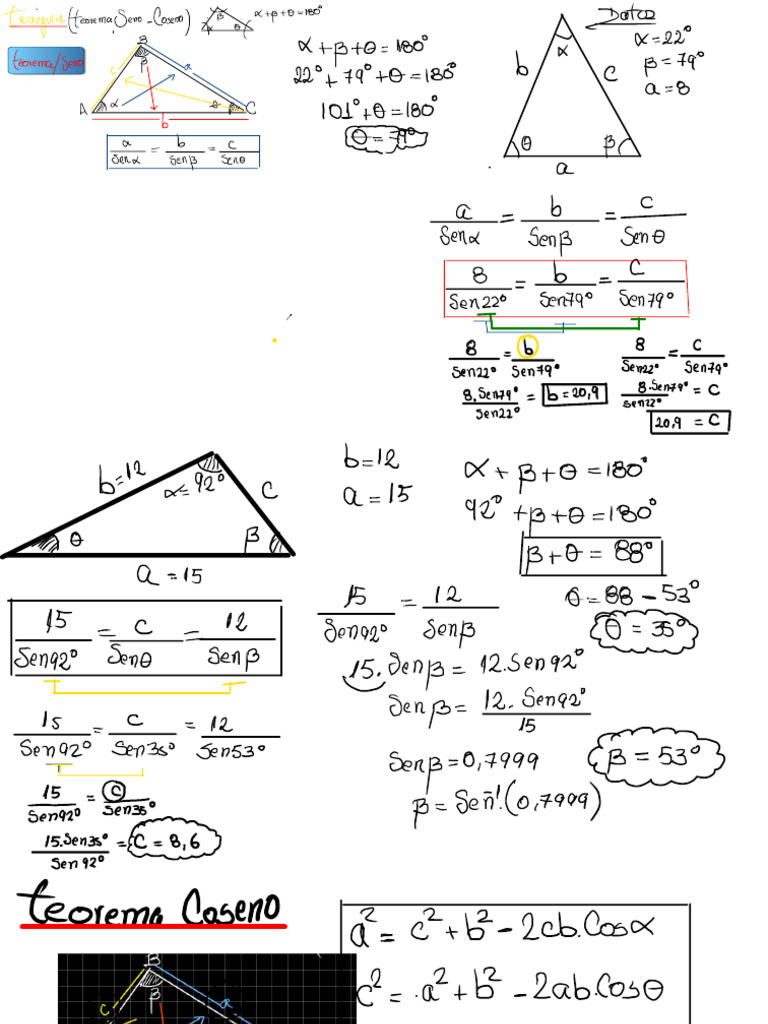 Triángulos (teorema Seno - Coseno)
α + β + θ = 180°
teorema/Seno
B
β
c
a
A
α
θ
C
b
a/Senα = b/Senβ = c/Senθ
α + β + θ = 180°
22° + 79° + θ = 180°
101° + θ = 180°
θ = 79°
Datos
α = 22°
β = 79°
a = 8
α
b
c
θ
β
a
a/Senα = b/Senβ = c/Senθ
8/Sen22° = b/Sen79° = c/Sen79°
8/Sen22° = b/Sen79°
8.Sen79°/Sen22° = b = 20,9
8/Sen22° = c/Sen79°
8.Sen79°/Sen22° = C
20,9 = C
b = 12
α = 92°
c
θ
β
a = 15
b = 12
a = 15
α + β + θ = 180°
92° + β + θ = 180°
β + θ = 88°
θ = 88 - 53°
θ = 35°
15/Sen92° = c/Senθ = 12/Senβ
15/Sen92° = 12/Senβ
15.Senβ = 12.Sen92°
Senβ = 12.Sen92°/15
Senβ = 0,7999
β = Sen⁻¹.(0,7999)
β = 53°
15/Sen92° = c/Sen35° = 12/Sen53°
15/Sen92° = c/Sen35°
15.Sen35°/Sen92° = C = 8,6
teorema Coseno
a² = c² + b² - 2cb.Cosα
c² = .a² + b² - 2ab.Cosθ
B
β
c
a